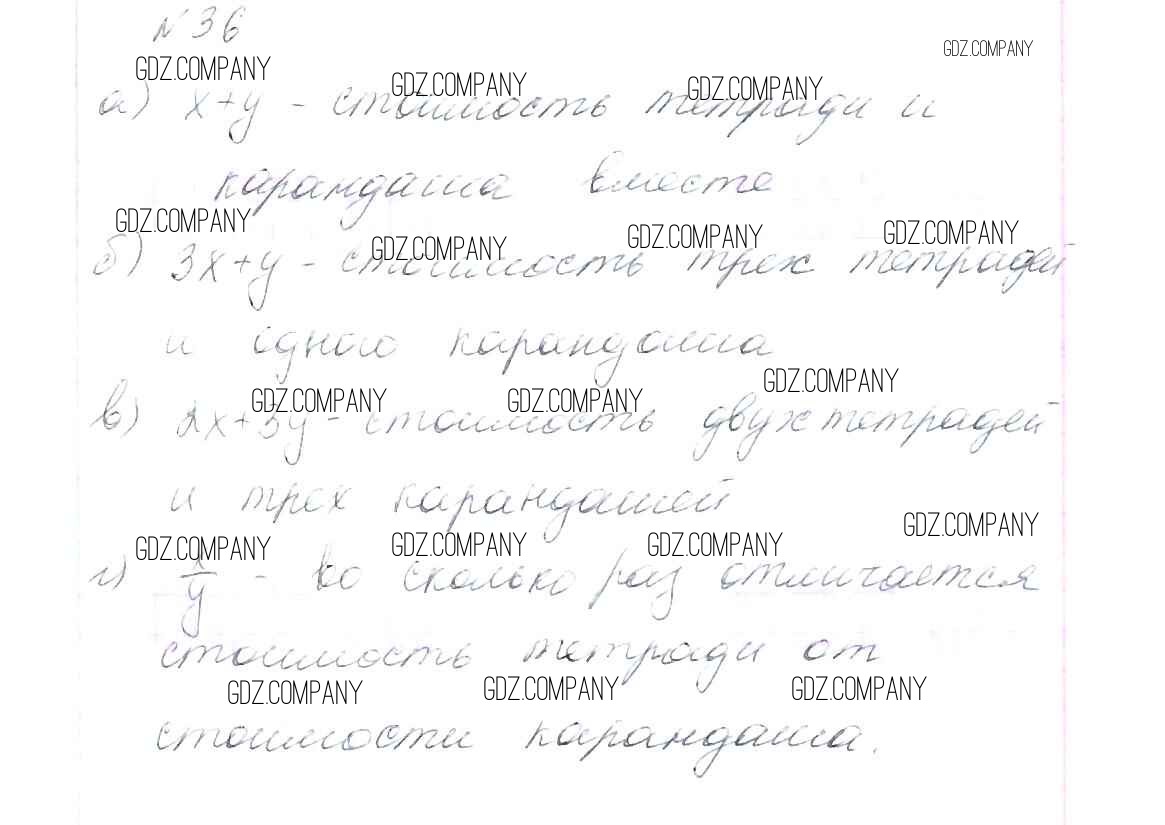 № 36
GDZ.COMPANY
GDZ.COMPANY GDZ.COMPANY GDZ.COMPANY
а) x+y - стоимость тетради и
карандаша вместе
GDZ.COMPANY GDZ.COMPANY GDZ.COMPANY GDZ.COMPANY
б) 3x+y - стоимость трех тетрадей
и одного карандаша
GDZ.COMPANY GDZ.COMPANY GDZ.COMPANY
в) 2x+3y - стоимость двух тетрадей
и трех карандашей
GDZ.COMPANY GDZ.COMPANY GDZ.COMPANY GDZ.COMPANY
г) x/y - во сколько раз отличается
стоимость тетради от
GDZ.COMPANY GDZ.COMPANY GDZ.COMPANY
стоимости карандаша.